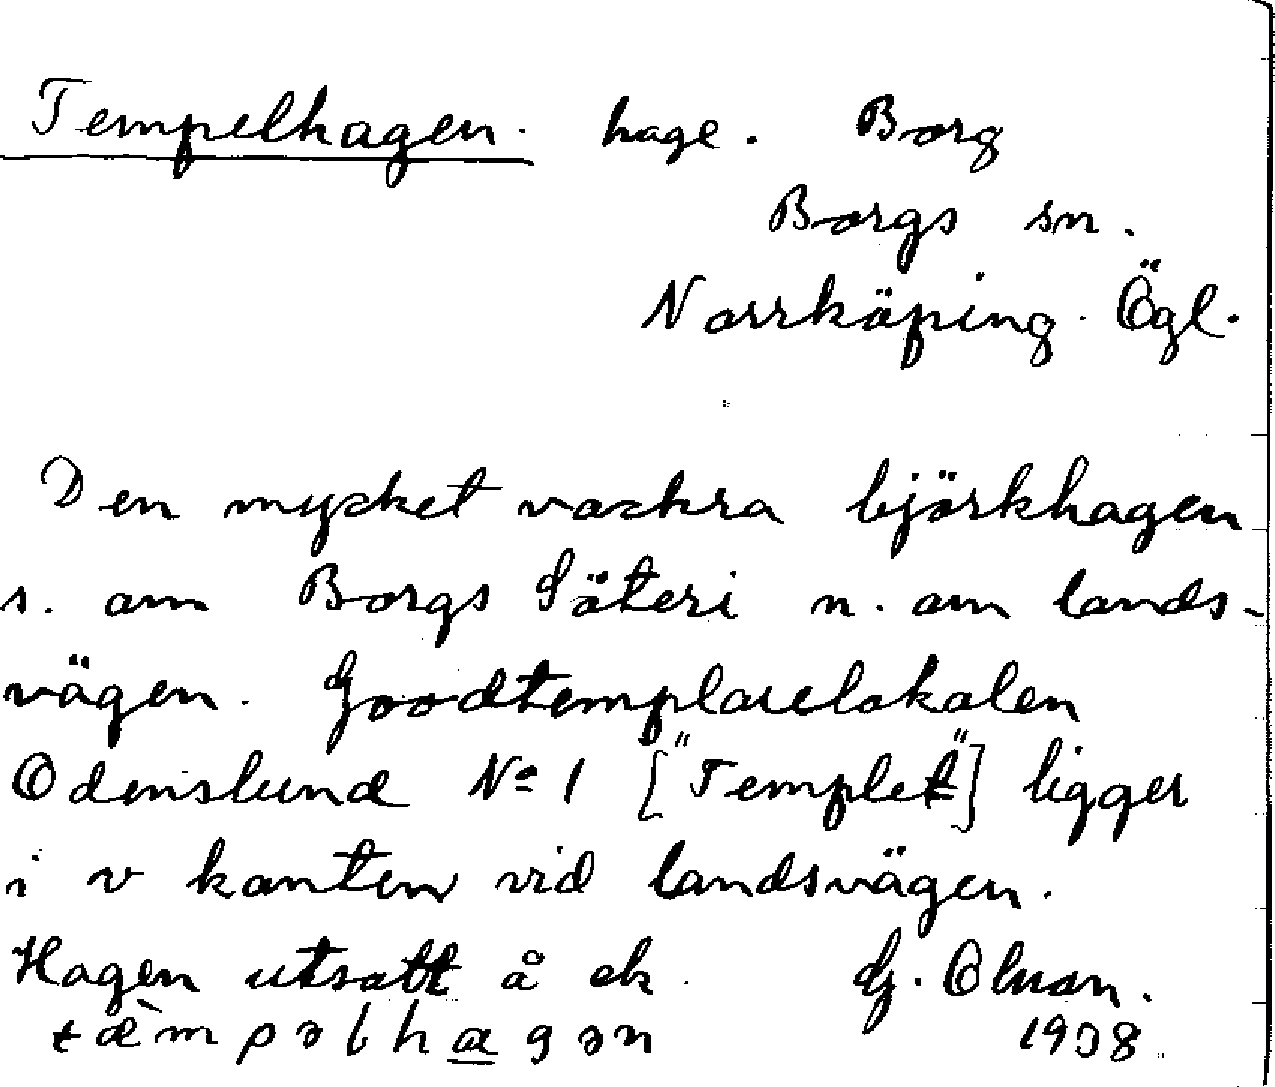 Tempelhagen. hage. Borg
Borgs sn.
Norrköping. Ögl.
Den mycket vackra björkhagen
s. om Borgs Säteri n. om lands-
vägen. Goodtemplarelokalen
Odenslund No 1 ["Templet"] ligger
i v kanten vid landsvägen.
Hagen utsatt å ek. G. Olson.
tæ̀mpəlhagən 1938